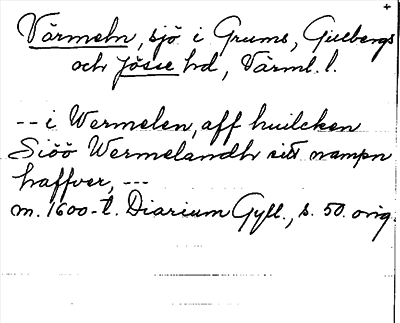 Värmeln, sjö i Grums, Gillbergs
och Jösse hd, Värml. l.
-- i Wermelen, aff huilcken
Siöö Wermelandh sitt nampn
haffver, ---
m. 1600-t. Diarium Gyll., s. 50. orig.